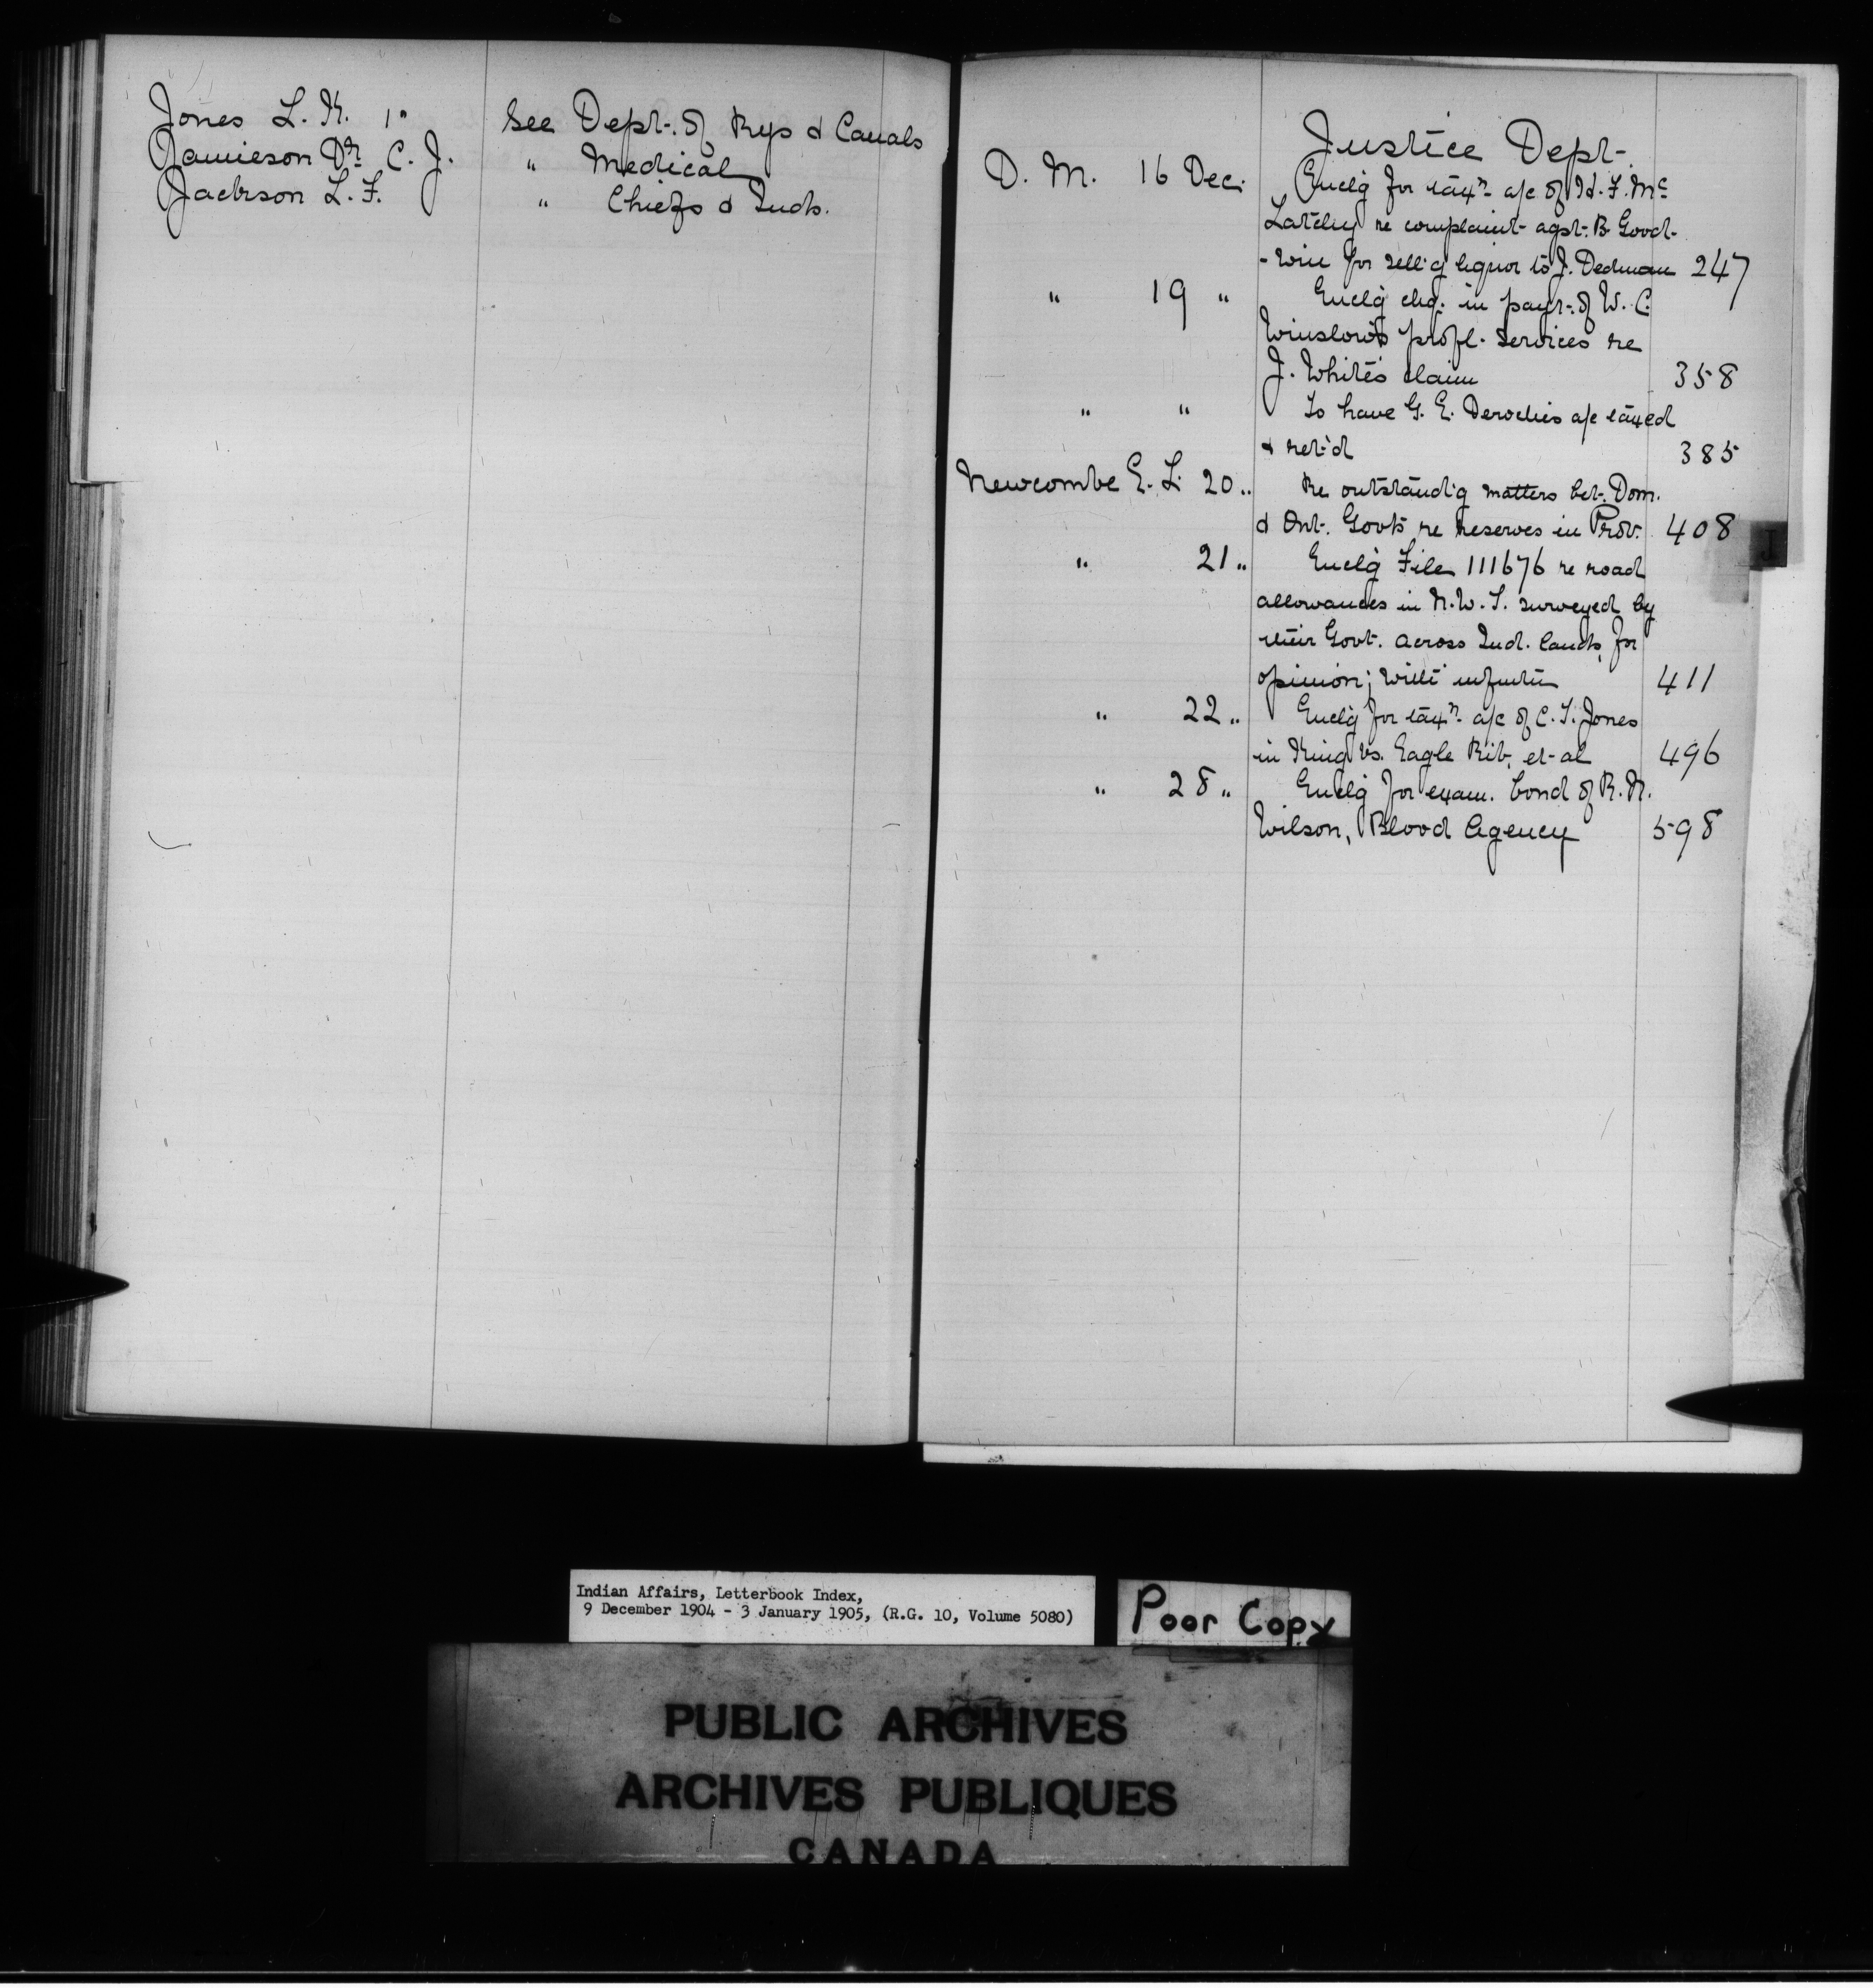 Jones L. K. 1" See Dept. of Rys & Canals
Jamieson Dr. C. J. " Medical
Jackson L. F. " Chiefs & Inds.
Justice Dept.
D. M. 16 Dec. Enclg for taxn a/c of H. F. Mc
Latchy re complaint agst. B. Good-
-win for sellig liquor to J. Dedman 247
" 19 " Enclg chq. in payt. of W. C.
Winslow's profl. services re
J. White's claim 358
" " To have G. E. Deroches a/c taxed
& retd 385
Newcombe E. L. 20 " Re outstandig matters bet. Dom.
& Ont. Govts re reserves in Prov. 408
" 21 " Enclg File 111676 re road
allowances in N.W.T. surveyed by
their Govt. across Ind. lands, for
opinion; 411
" 22 " Enclg for taxn a/c of C. T. Jones
in King vs. Eagle Rib, et al 496
" 28 " Enclg for exam. bond of R. N.
Wilson, Blood Agency 598
J
Indian Affairs, Letterbook Index,
9 December 1904 - 3 January 1905, (R.G. 10, Volume 5080)
Poor Copy
PUBLIC ARCHIVES
ARCHIVES PUBLIQUES
CANADA